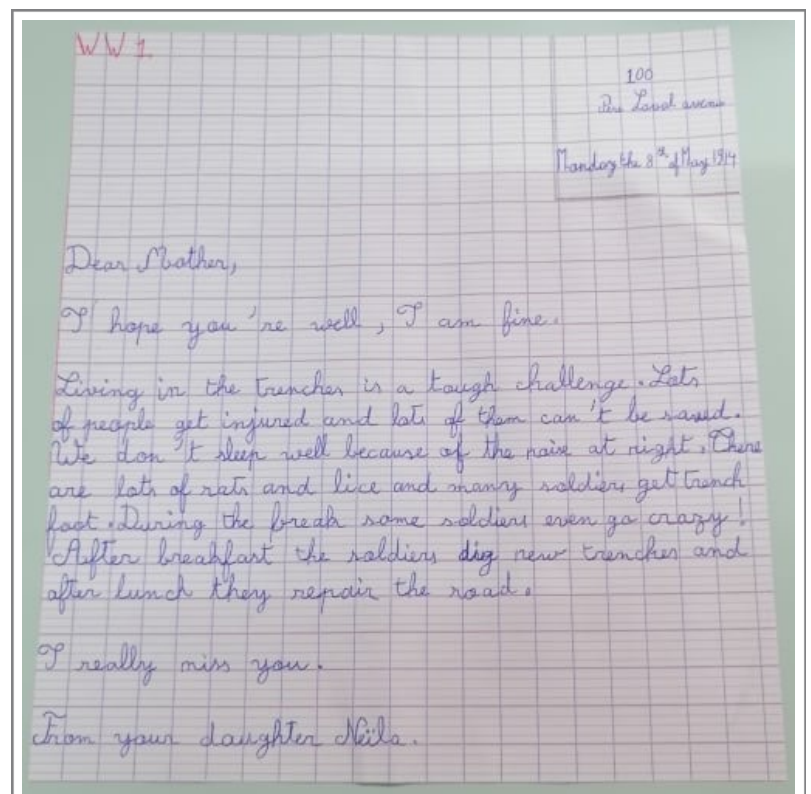 WW1.
100
Père Laval avenue
Monday the 8th of May 1914
Dear Mother,
I hope you're well, I am fine.
Living in the trenches is a tough challenge. Lots
of people get injured and lots of them can't be saved.
We don't sleep well because of the noise at night. There
are lots of rats and lice and many soldiers get trench
foot. During the break some soldiers even go crazy!
After breakfast the soldiers dig new trenches and
after lunch they repair the road.
I really miss you.
From your daughter Neïla.